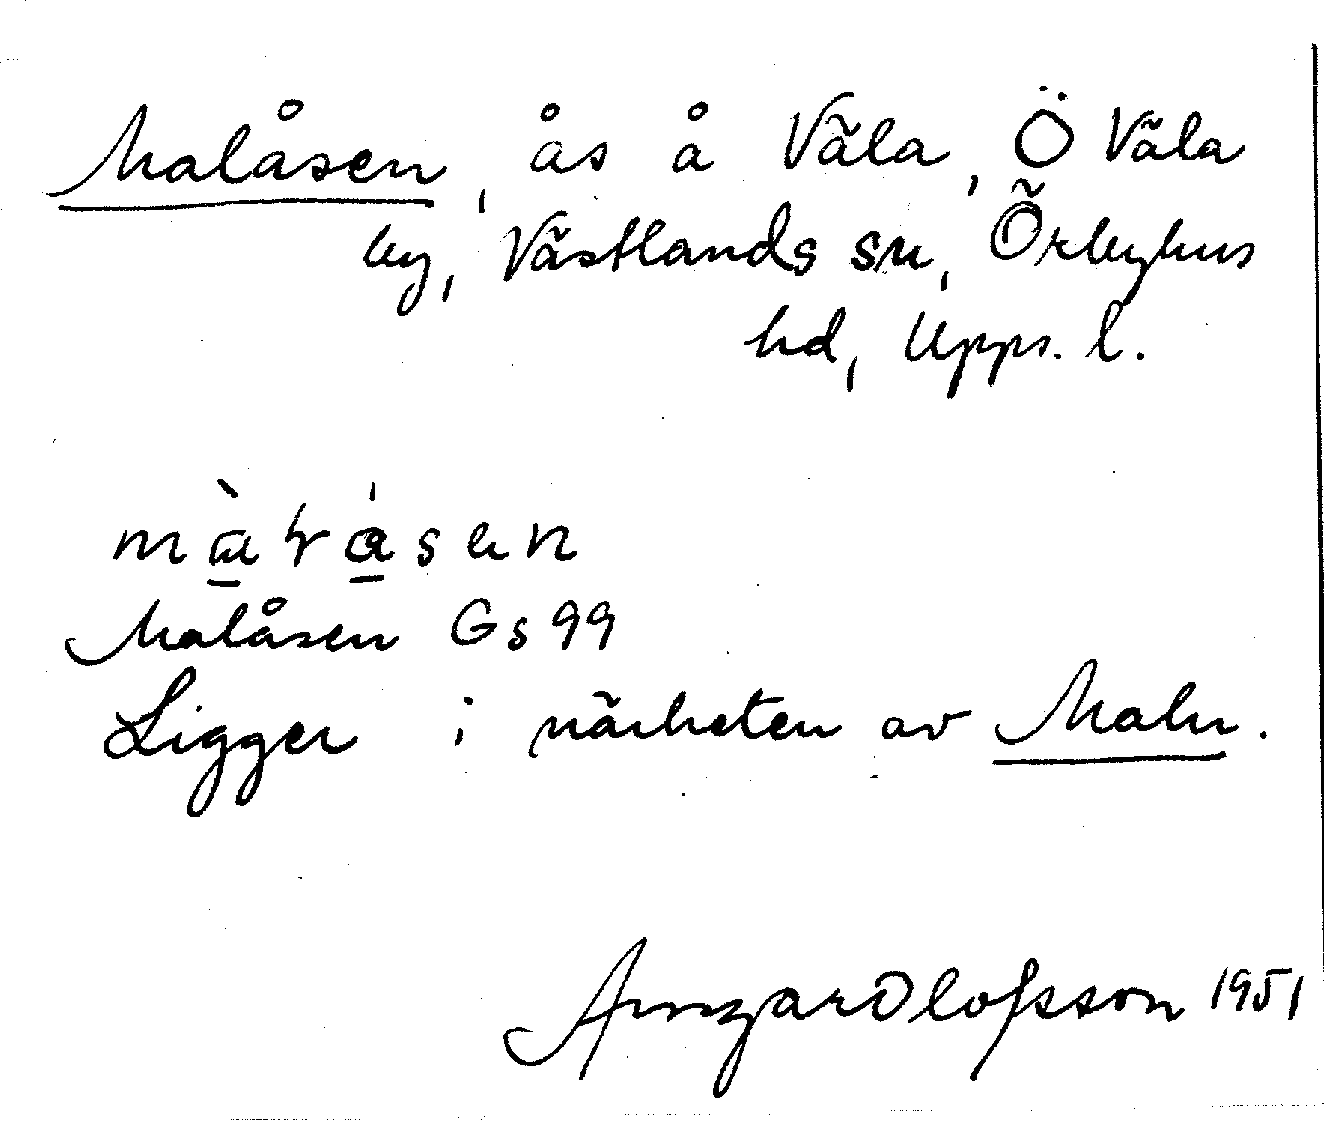 Malåsen, ås å Väla, Ö Väla
by, Västlands sn, Örbyhus
hd, Upps. l.
Malåsen Gs 99
Ligger i närheten av Maln.
Olofsson 1951